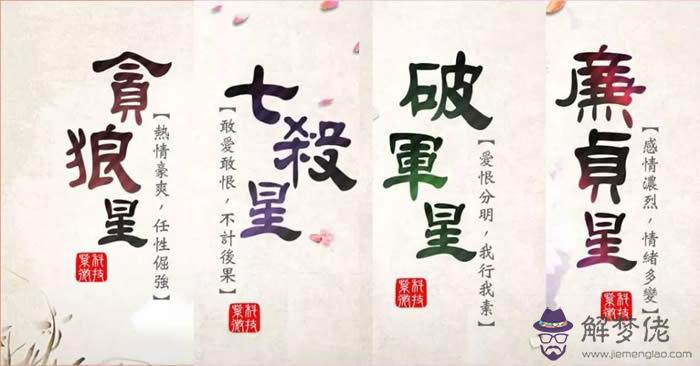 貪狼星
【熱情豪爽，任性倔強】
科技紫微
七殺星
【敢愛敢恨，不計後果】
科技紫微
破軍星
【愛恨分明，我行我素】
科技紫微
廉貞星
【感情濃烈，情緒多變】
科技紫微
解梦佬
www.jiemenglao.com